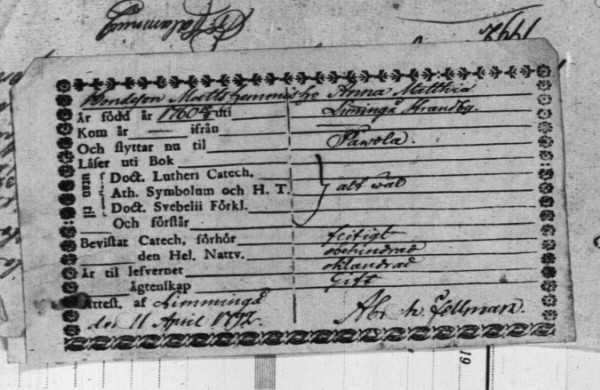 Bondeson Matts Hemmi Anna Matthia
Är född år 1760 uti Limingå Strandby.
Kom år — ifrån
Och flyttar nu til Pavola.
Läser uti Bok
utan til Doct. Lutheri Catech.
Ath. Symbolum och H. T. alt wäl
Doct. Svebelii Förkl.
Och förstår
Bevistat Catech. förhör flitigt
den Hel. Nattv. obehindrad
Är til lefvernet oklandrad
ägtenskap Gift
Attest. af Limmingå
den 11 April 1792. Abr. h. Fellman.
1792
19